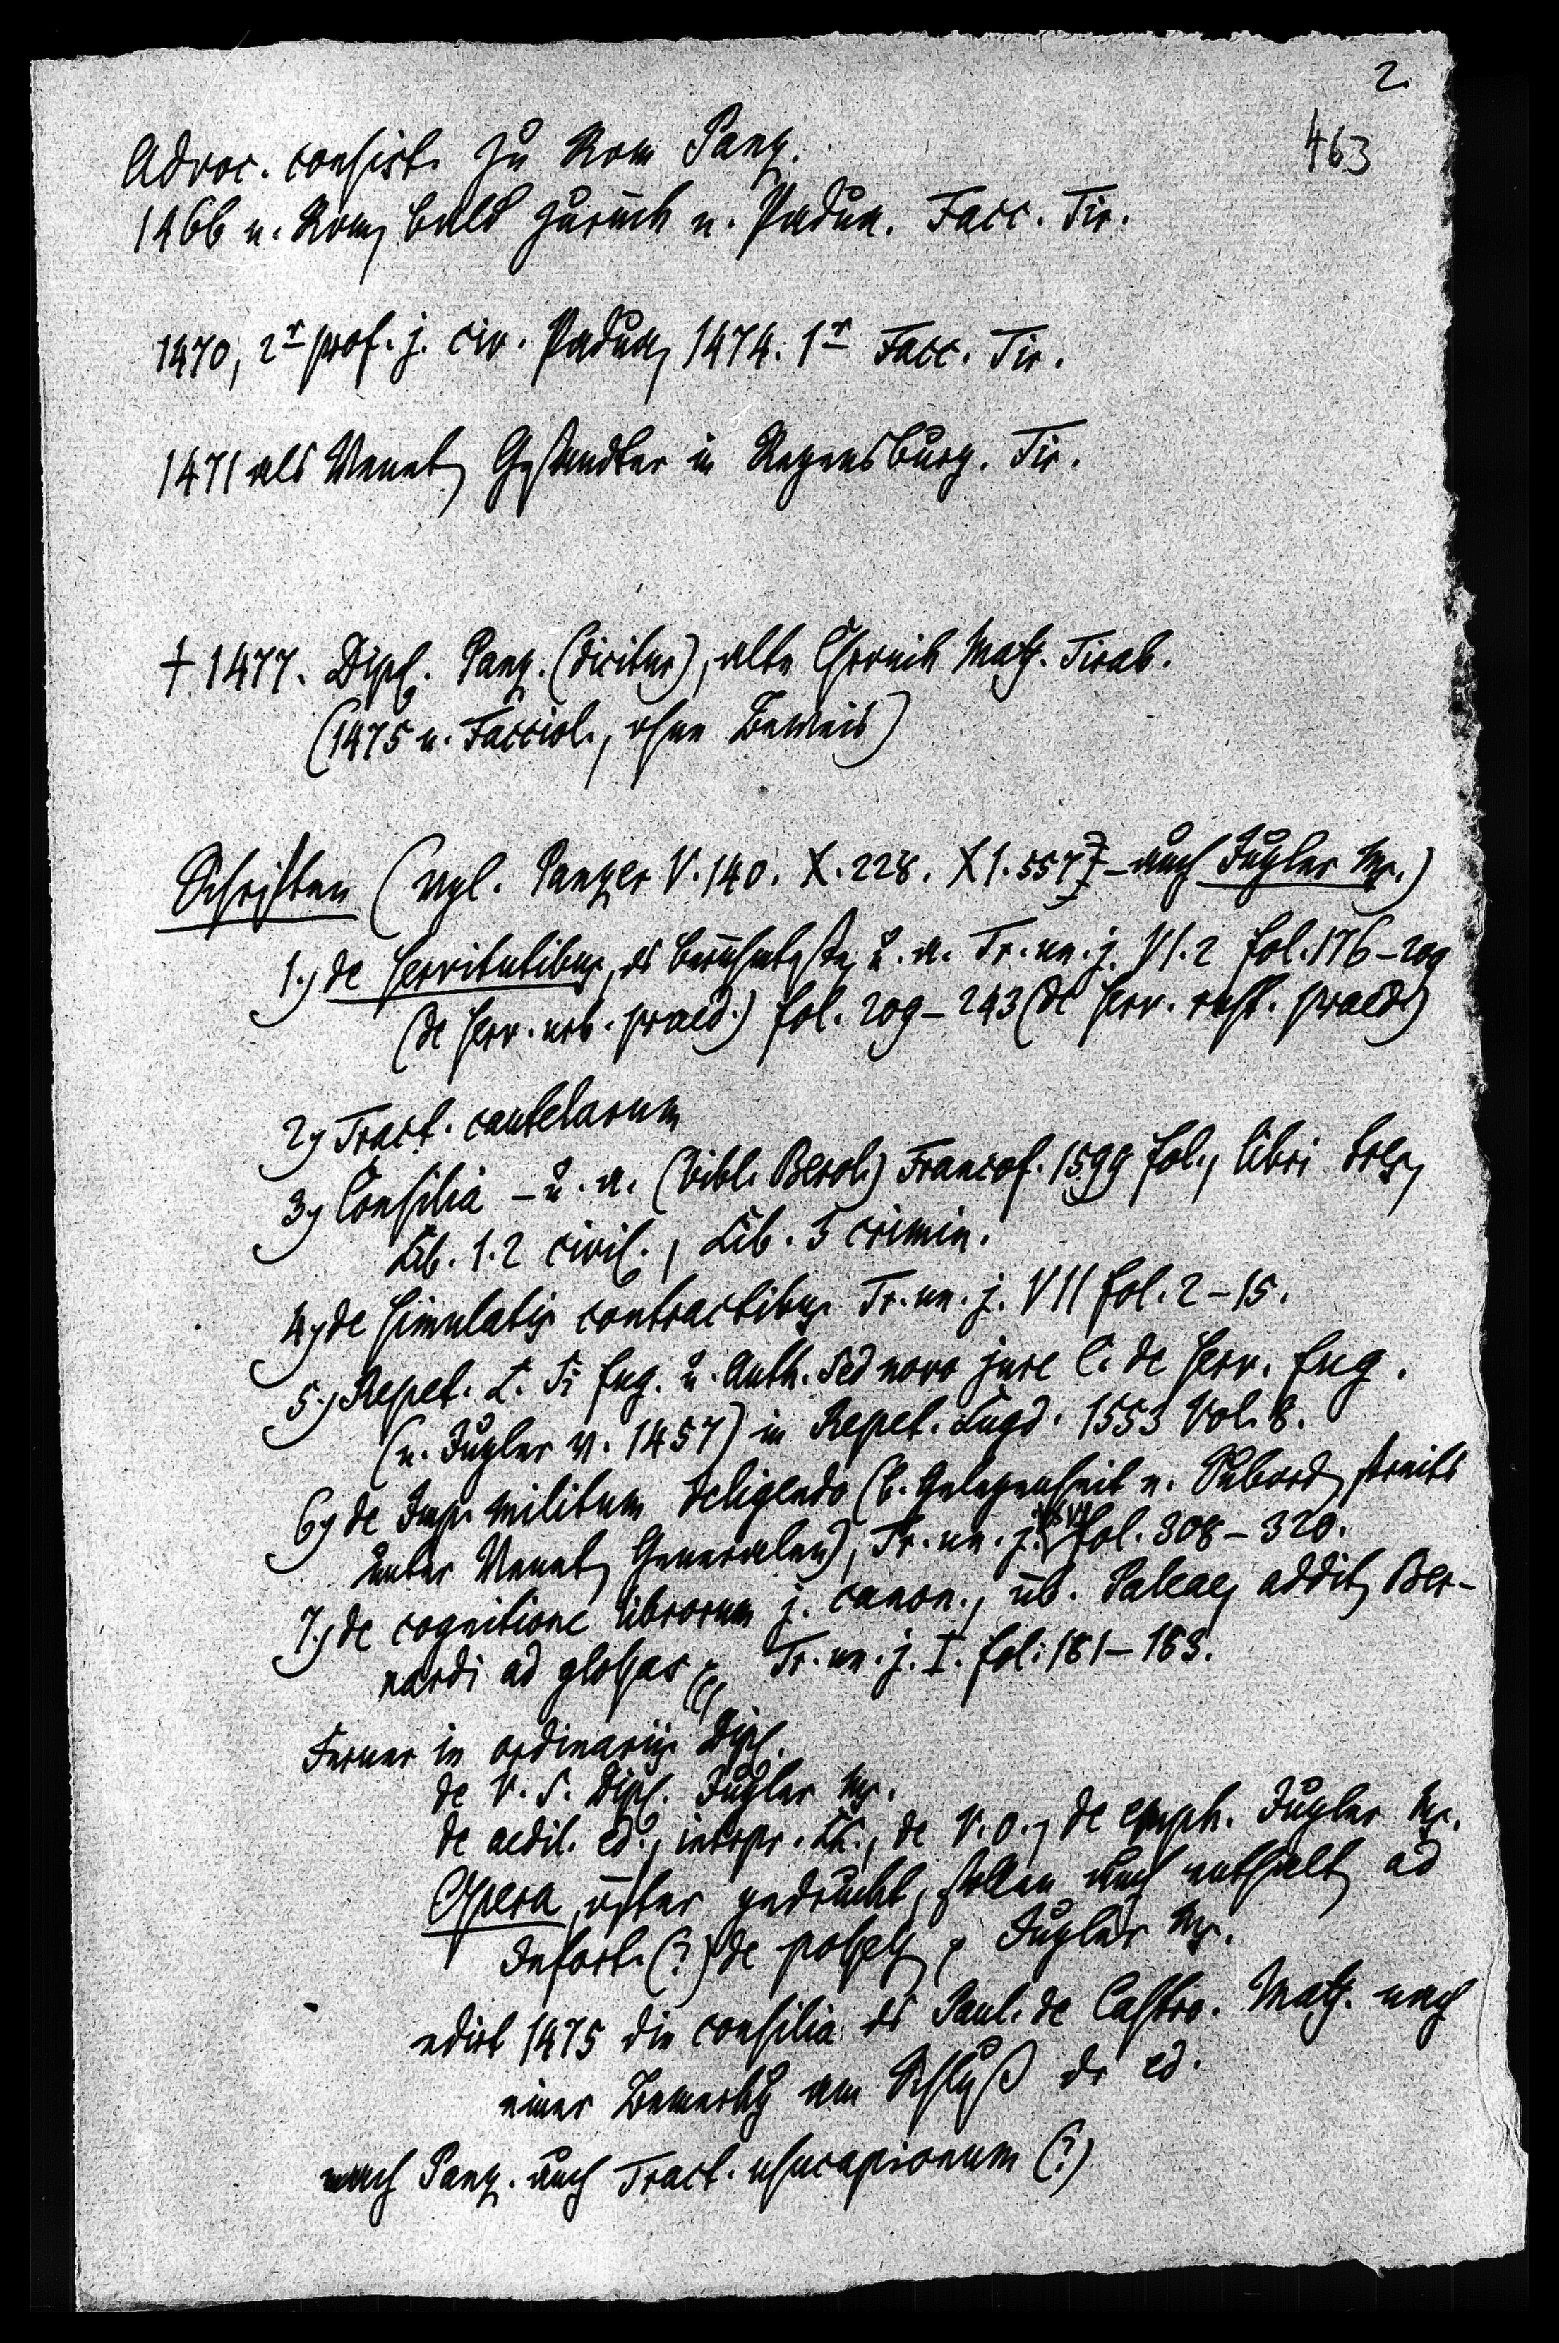 2.
463
Advoc. consist. zu Rom Panz.
1466 n. Rom, bald zurück n. Padua. Facc. Tir.
1470, 2r prof. j. civ. Padua, 1474. 1r Facc. Tir.
1471 als Venet. Gesandter in Regensburg. Tir.
† 1477. Dipl. Panz. (dicitur), alte Chronik Maz. Tirab.
(1475 n. Facciol., ohne Beweis)
Schriften (vgl. Panzer V. 140. X. 228. XI. 557 - auch Jugler Ms.)
1., de servitutibus, ds berühmteste, u. a. Tr. un. j. VI. 2 fol. 176–209
(de serv. urb. praed.) fol. 209–243 (de serv. rust. praed.)
2, Tract. cautelarum
3, Consilia – u. a. (bibl. Berol.) Francof. 1599 fol., libri tres,
Lib. 1. 2 civil., Lib. 3 crimin.
4, de simulatis contractibus Tr. un. j. VII fol. 2–15.
5., Repet. L. Si fug. u. Auth. Sed novo jure C. de serv. fug.
(n. Jugler v. 1457) in Repet. Lugd. 1553 Vol. 8.
6, de Imp. militum deligendo (b. Gelegenheit e. Subord. streits
unter Venet. Generalen), Tr. un. j. XVI fol. 308–320.
7., de cognitione librorum j. canon., üb. Paleae, addit. Ber-
nardi ad glossas, Tr. un. j. I. fol. 181–183.
Ferner in ordinariis Dipl.
de V. S. Dipl. Jugler Ms.
de aedil. ed., interpr. LL., de V. O., de emph. Jugler Ms.
Opera, öfter gedruckt, sollen auch enthalt. ad
Infort. (?) de possess. Jugler Ms.
edirt 1475 die consilia ds Paul. de Castro. Maz. nach
einer Bemerkg am Schluß dr ed.
nach Panz. auch Tract. usucapionum (?)